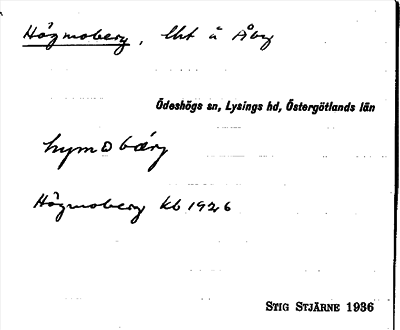 Högmoberg, lht å Åby
Ödeshögs sn, Lysings hd, Östergötlands län
hymobärj
Högmoberg kb 1926
STIG STJÄRNE 1936